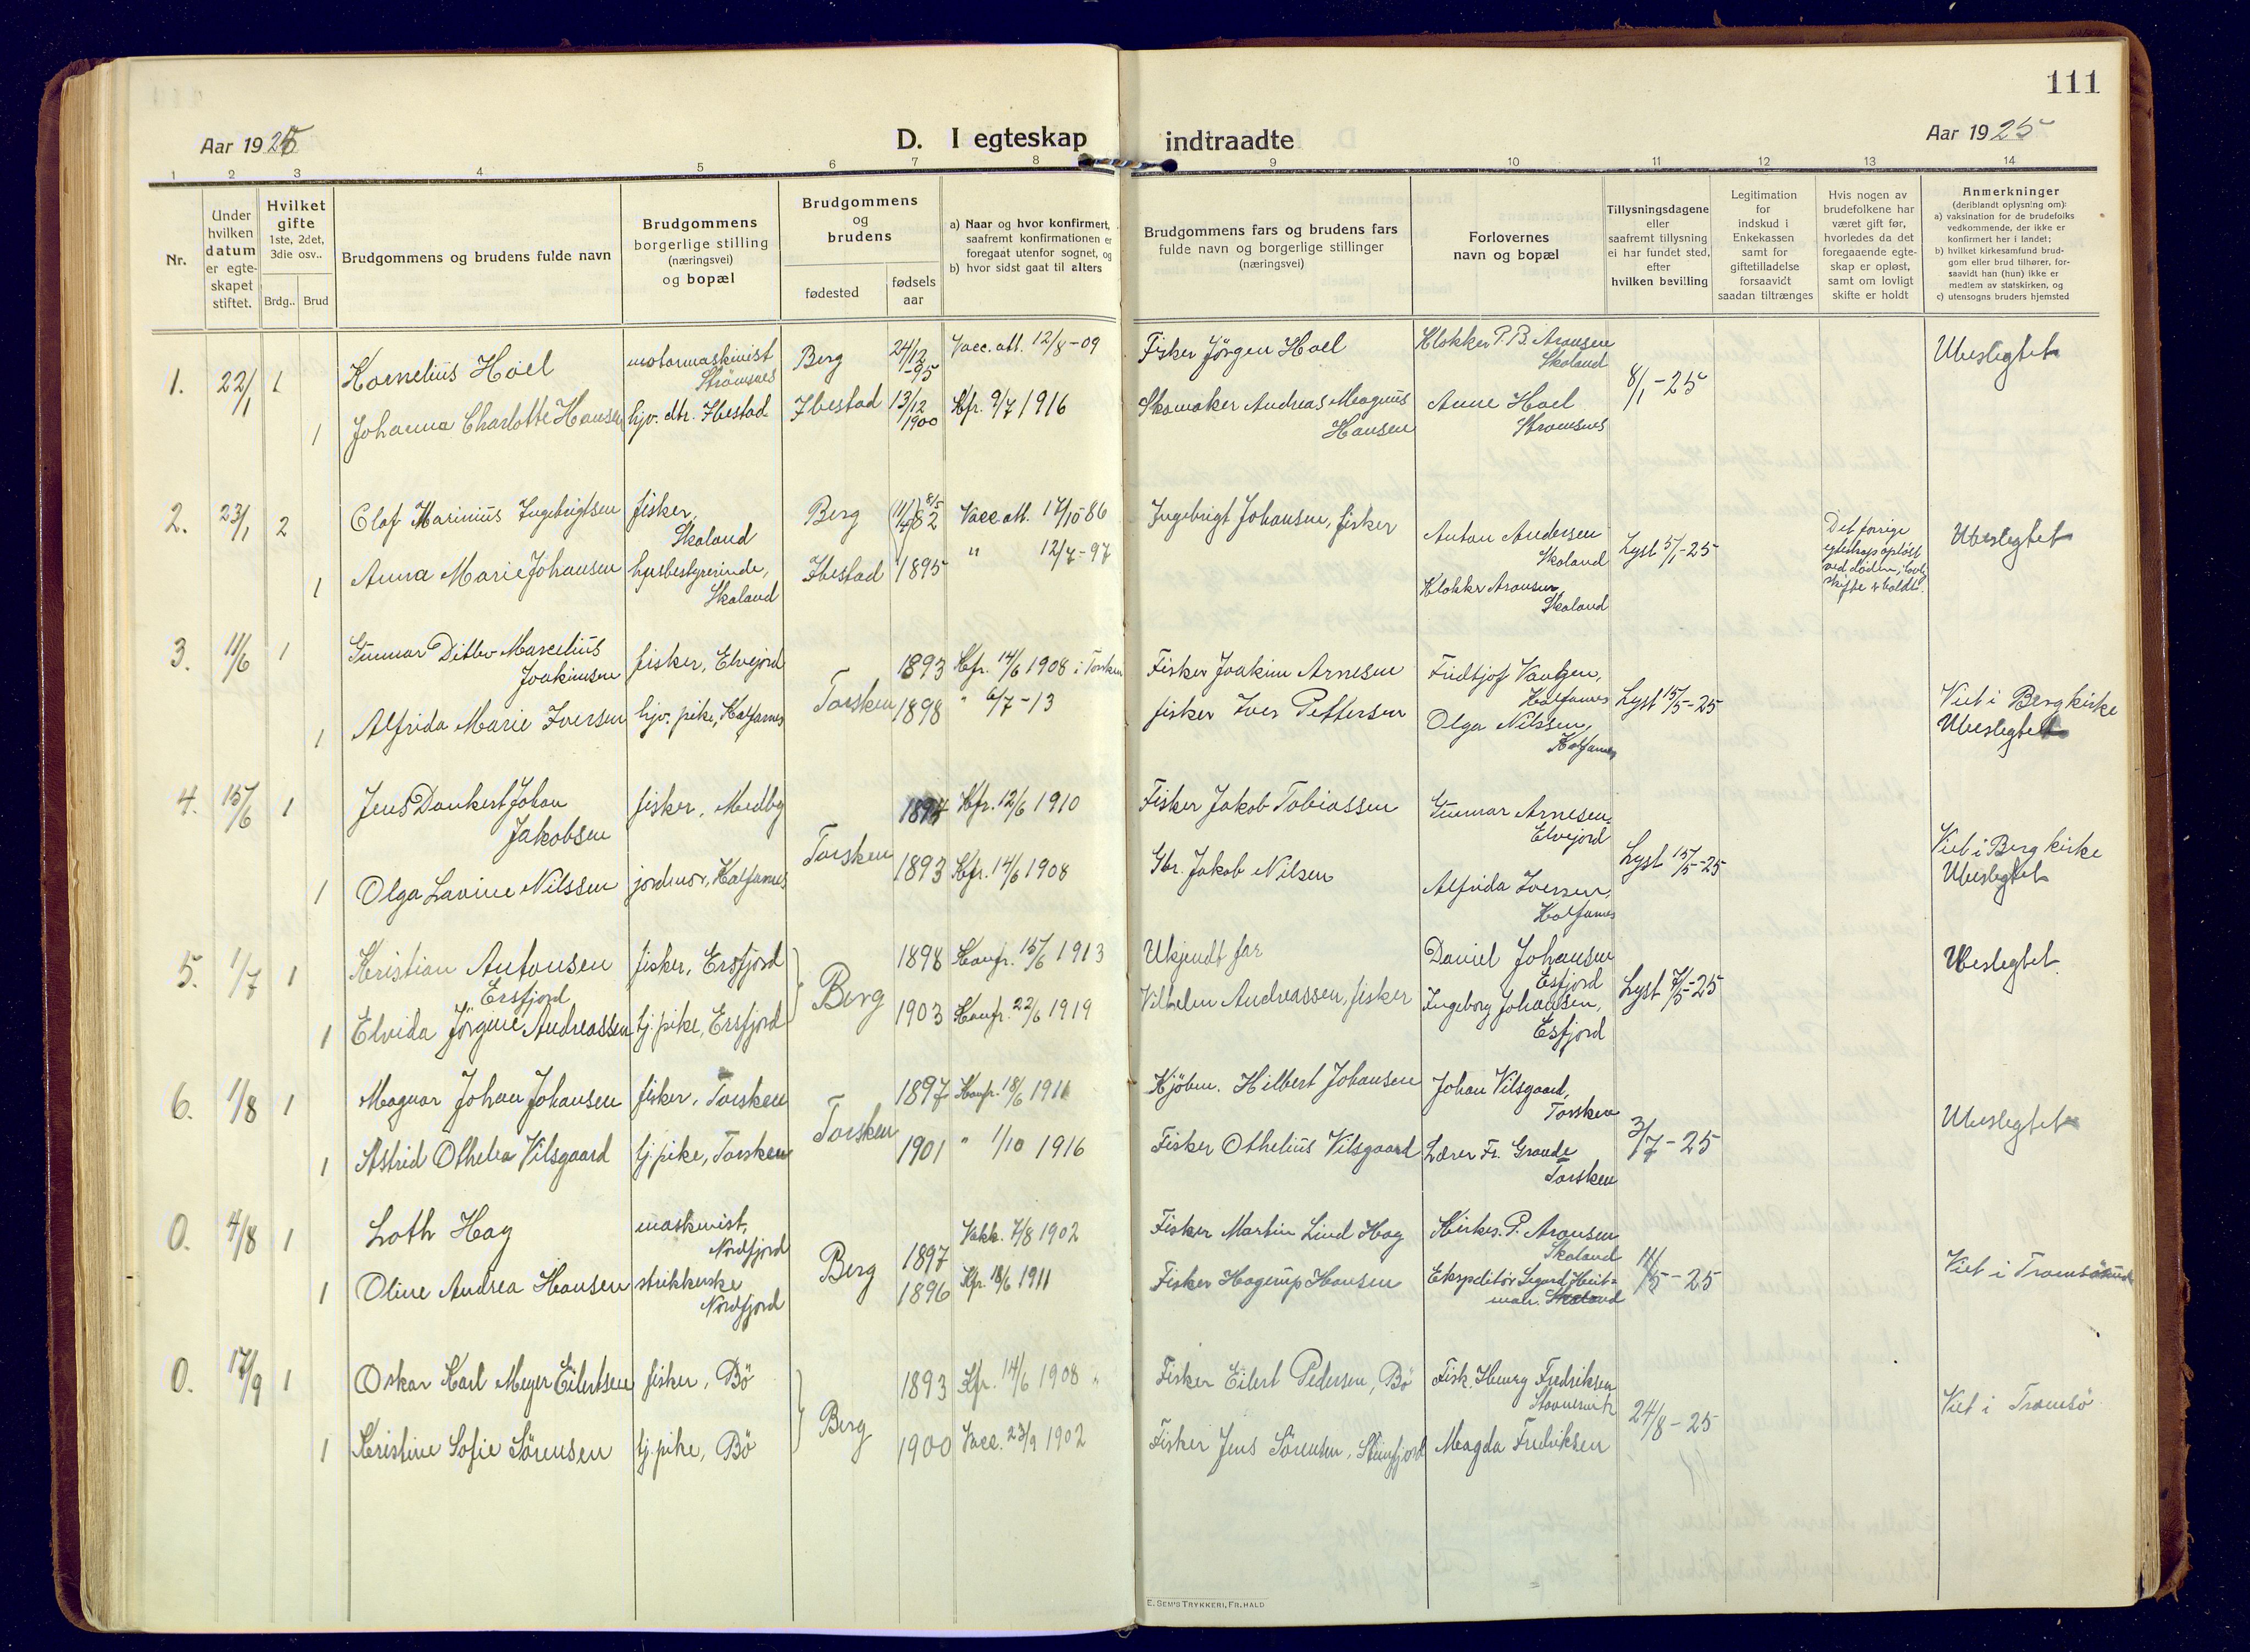 111
Aar 1925
D. I egteskap indtraadte
Aar 1925
1 2 3 4 5 6 7 8 9 10 11 12 13 14
Nr.
Under hvilken datum er egteskapet stiftet.
Hvilket gifte 1ste, 2det, 3die osv..
Brdg.. Brud
Brudgommens og brudens fulde navn
Brudgommens borgerlige stilling (næringsvei) og bopæl
Brudgommens og brudens
fødested
fødsels aar
a) Naar og hvor konfirmert, saafremt konfirmationen er foregaat utenfor sognet, og
b) hvor sidst gaat til alters
Brudgommens fars og brudens fars fulde navn og borgerlige stillinger (næringsvei)
Forlovernes navn og bopæl
Tillysningsdagene eller saafremt tillysning ei har fundet sted, efter hvilken bevilling
Legitimation for indskud i Enkekassen samt for giftetilladelse forsaavidt saadan tiltrænges
Hvis nogen av brudefolkene har været gift før, hvorledes da det foregaaende egteskap er opløst, samt om lovligt skifte er holdt
Anmerkninger (deriblandt oplysning om):
a) vaksination for de brudefolks vedkommende, der ikke er konfirmert her i landet;
b) hvilket kirkesamfund brudgom eller brud tilhører, forsaavidt han (hun) ikke er medlem av statskirken, og
c) utensogns bruders hjemsted
1. 22/1 1 Kornelius Hoel motormaskinist Strömsnes Berg 24/12-95 Vacc. att. 12/8-09 Fisker Jörgen Hoel Klokker P. B. Aronsen Skaland 8/1-25 Ubeslegtet
1 Johanna Charlotte Hansen hjv. dtr. Ibestad Ibestad 13/12 1900 Kfr. 9/7 1916 Skomaker Andreas Magnus Hansen Anne Hoel Stromsnes
2. 23/1 2 Olaf Marinius Ingebrigtsen fisker, Skaland Berg 82 Vacc. att. 17/10 86 Ingebrigt Johansen, fisker Anton Andersen Skaland Lyst 5/1-25 Det forrige egteskap opløst ved døden, lovl. skifte e holdt. Ubeslegtet
1 Anna Marie Johansen husbestyrerinde, Skaland Ibestad 1895 " 12/7-97 Klokker Aronsen, Skaland
3. 11/6 1 Gunnar Ditlev Marcelius Joakimsen fisker, Elvejord Torsken 1893 Kfr. 14/6 1908 i Torsken Fisker Joakim Arnesen Fridtjof Vangen, Kalfarnes Lyst 15/5-25 Viet i Berg kirke
1 Alfrida Marie Iversen hjv. pike, Kalfarnes 1898 " 6/7-13 fisker Iver Pettersen Olga Nilssen, Kalfarnes Ubeslegtet
4. 15/6 1 Jens Dankert Johan Jakobsen fisker, Medby Torsken 1894 Kfr. 12/6 1910 Fisker Jakob Tobiassen Gunnar Arnesen, Elvejord Lyst 15/5-25 Viet i Berg kirke
1 Olga Lavine Nilssen jordmor, Kalfarnes 1893 Kfr. 14/6 1908 Gbr. Jakob Nilsen Alfrida Iversen, Kalfarnes Ubeslegtet
5. 1/7 1 Kristian Antonsen Ersfjord fisker, Ersfjord Berg 1898 Konfr. 15/6 1913 Ukjendt far Daniel Johansen Esfjord Lyst 7/5-25 Ubeslegtet
1 Elvida Jörgine Andreassen tj. pike, Ersfjord 1903 Konfr. 22/6 1919 Vilhelm Andreassen, fisker Ingeborg Johansen, Esfjord
6. 1/8 1 Magnar Johan Johansen fisker, Torsken Torsken 1897 Konfr. 18/6 1911 Kjöbm. Hilbert Johansen Johan Vilsgaard, Torsken 3/7-25 Ubeslegtet
1 Astrid Othelia Vilsgaard tj. pike, Torsken 1901 " 1/10 1916 Fisker Othelius Vilsgaard Lærer Fr. Grande Torsken
0. 4/8 1 Loth Hag maskinist, Nordfjord Berg 1897 Vakk. 7/8 1902 Fisker Martin Lind Hag Kirkes. P. Aronsen Skaland 11/5-25 Viet i Tromsösund
1 Oline Andrea Hansen strikkerske Nordfjord 1896 Kfr. 18/6 1911 Fisker Hagerup Hansen Ekspeditör Skaland
0. 17/9 1 Oskar Karl Meyer Eilertsen fisker, Bö Berg 1893 Kfr. 14/6 1908 Fisker Eilert Pedersen, Bö Fisk. Henry Fredriksen 24/8-25 Viet i Tromsö
1 Kristine Sofie Sörensen tj. pike, Bö 1900 Vacc. 23/9 1902 Fisker Jens Sörensen, Steinfjord Magda Fredriksen
E. SEM'S TRYKKERI, FR.HALD